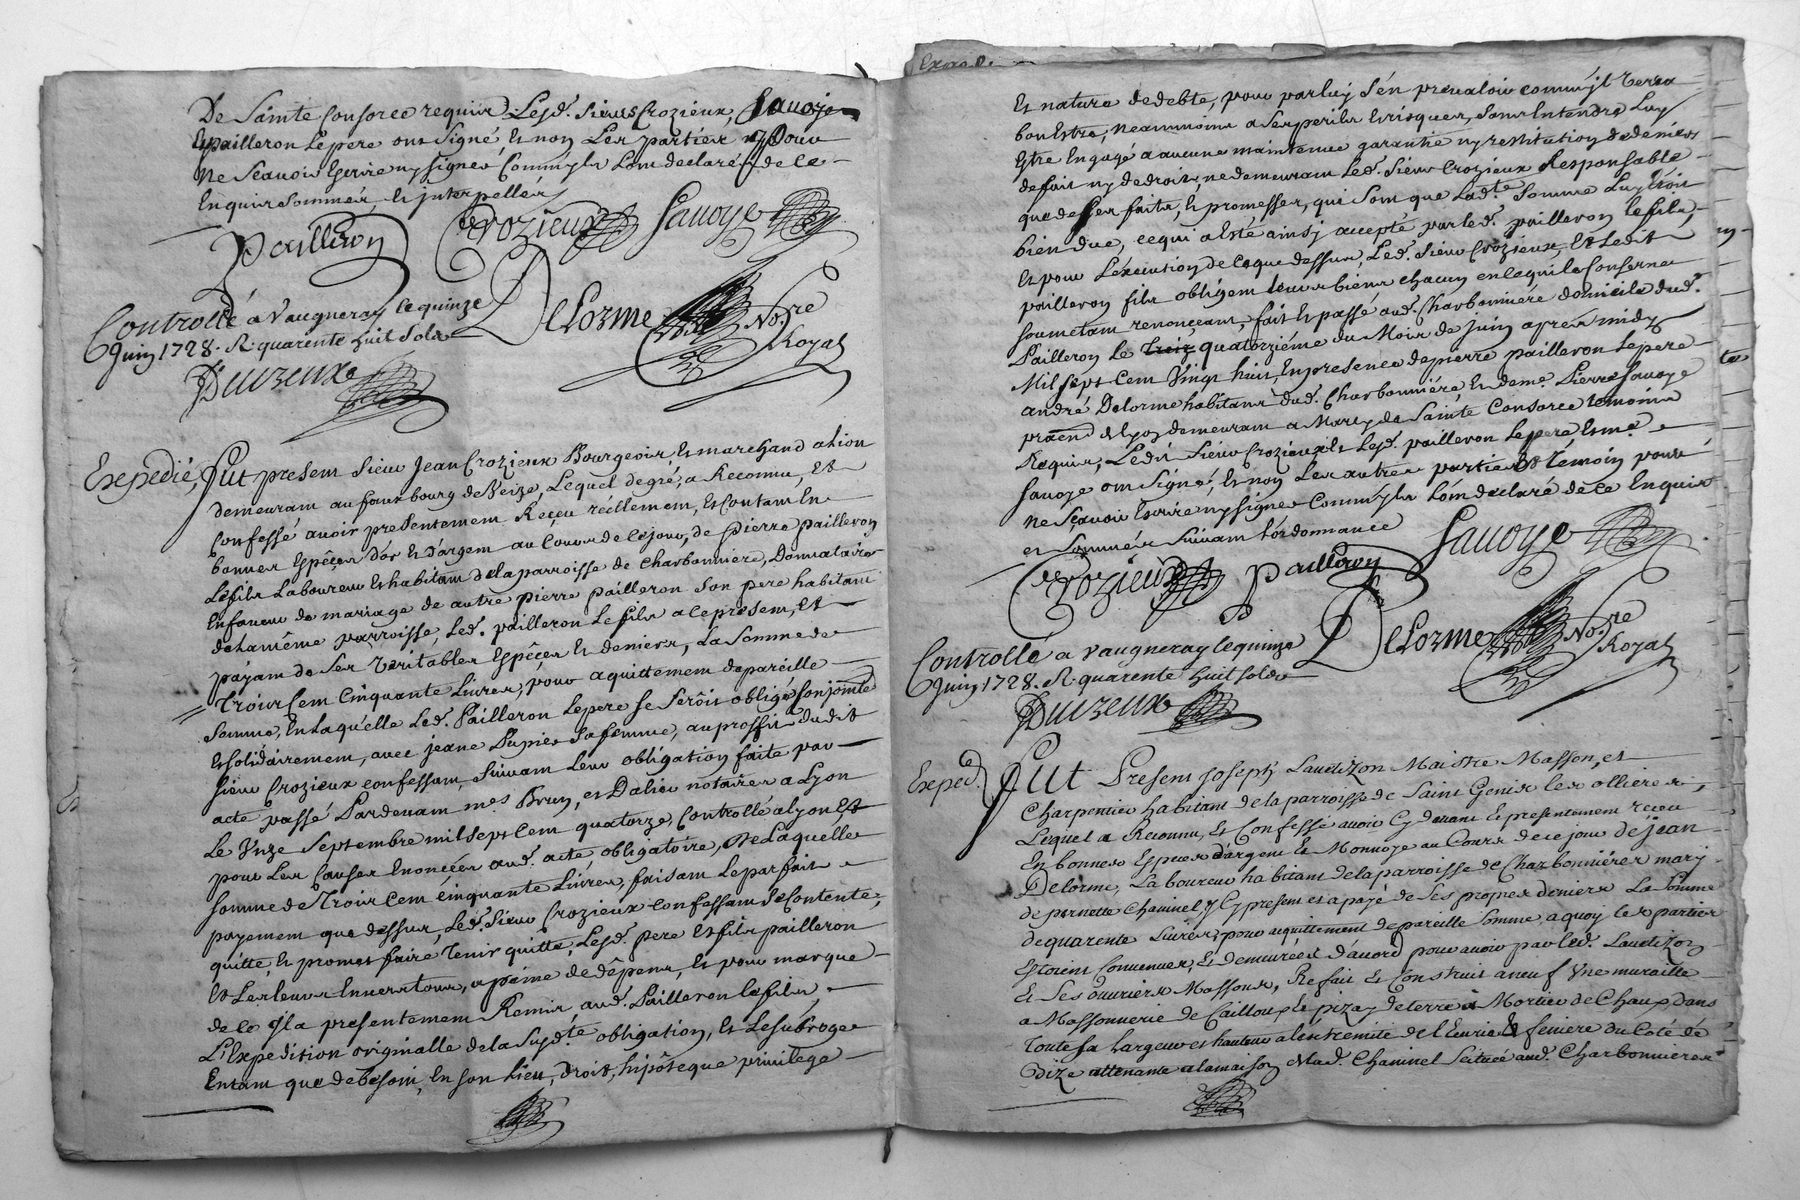 De Sainte Consorce requis Lesd. Sieurs Crozieux, Savoye
Et pailleron Le pere ont signé Et non Les parties pour
Ne Scavoir Escrire ny signer Comm'ils L'ont declaré de ce
Enquis sommés, et interpellés
Pailleron Crozieux Savoye
Controllé a Vaugneray le quinze
Juin 1728. R. quarente huit sols
Delorme No.re
Royal
Duzeux
Expedié, Fut present Sieur Jean Crozieux Bourgeois, Et marchand a Lion
demeurant au faux bourg de Veize, Lequel de gré, a Reconnu, Et
Confessé avoir presentement Reçeu réellement, Et Contant En
bonnes Espêces d'or Et d'argent au Cours de Cejour, de Pierre pailleron
Le fils Laboureur Et habitant de la parroisse de Charbonniére, Donnataire
En faveur de mariage de autre pierre pailleron Son pere habitant
de la même parroisse, Led. pailleron Le fils a ce present, Et
payant de Ses Veritables Espêces Et deniers, La Somme de
Trois Cent Cinquante Livres, pour aquittement de pareille
Somme, En Laquelle Led. Pailleron Le pere se Serôit obligé Conjointe
Et Solidairement, avec jeane Dupies Sa femme, au proffit dudit
Sieur Crozieux confessant, Suivant Leur obligation faite par
acte passé Pardevant Mes Brun, et Dalier notaires a Lyon
Le Unze Septembre mil Sept Cent quatorze, Controllé a Lyon Et
pour Les Causes Enoncées aud. acte obligatoire, De Laquelle
Somme de Trois Cent cinquante Livres, faisant Le parfait
payement que dessus, Led. Sieur Crozieux Confessant Se Contente,
quitte, Et promet faire Tenir quitte, Lesd. pere Et fils pailleron
Et Les Leurs Envers tous, a peine de dêpens, Et pour marque
de ce Il a presentement Remis, aud. Pailleron Le fils,
L'Expedition originalle de la Susd.te obligation, Et Le Subroge
Entant que de besoin, En Son Lieu, Droit, hipôteque privilege
Et nature de debte, pour par luy S'en prevaloir comm'il Verra
bon Estre, neanmoins a Ses perils Et risques, Sans Entendre Luy
Estre Engagé a aucune maintenue garantie ny restitution de deniers
de fait ny de droit, ne demeurant Led. Sieur Crozieux Responsable
que de Ses faits, Et promesses, qui Sont que Lad.te Somme Luy Etoit
bien due, ce qui a Esté ainsy accepté par Led. pailleron le fils,
Et pour L'éxecution de Ce que dessus, Led. Sieur Crozieux, Et Ledit
pailleron fils obligent Leurs biens chacun en ce qui Le Conserne
Soumettant renonceant, fait Et passé aud. Charbonniére domicile dud.
Pailleron Le quatorziéme du Mois de juin aprés midy
Mil Sept Cent Vingt huit, En presence de pierre pailleron Le pere
André Delorme habitans dud. Charbonniére, Et de Me. Pierre Savoye
demeurant a Marcy de Sainte Consorce temoins
Requis, Ledit Sieur Crozieux Et Lesd. pailleron Le pere Et Me.
Savoye ont Signé, Et non Les autres parties Et Témoin pour
ne Sçavoir Escrire ny signer Comm'ils L'ont declaré de Ce Enquis
et Sommés Suivant L'ordonnance
Savoye
Crozieux Pailleron
Controllé a Vaugneray le quinze
Juin 1728. R. quarente huit sols
Delorme No.re
Royal
Duzeux
Exped. Fut Present Joseph Maistre Masson, et
Charpentier habitant de la parroisse de Saint Genis les ollieres,
Lequel a Reconnu, Et Confessé avoir Cy devant Et presentement receu
En bonnes Especes d'argent Et Monnoye au Cours de ce jour de jean
Delorme, Laboureur habitant de la parroisse de Charbonniéres mary
de pernette Chaninel, Cy present et a payé de Ses propres deniers La Somme
de quarente Livres, pour acquittement de pareille Somme, a quoy Les parties
Estoient Convenues, Et demeurées d'acord pour avoir par Led.
Et Ses ouvriers Massons, Refait Et Construit a neuf Une muraille
a Massonnerie de Cailloux, Le pizay de terre a Mortier de Chaux, dans
toute Sa Largeur et hauteur a l'extremite de l'Ecurie & feniere du Coté de
bize attenante a la maison Chaninel Scituée aud. Charbonnieres